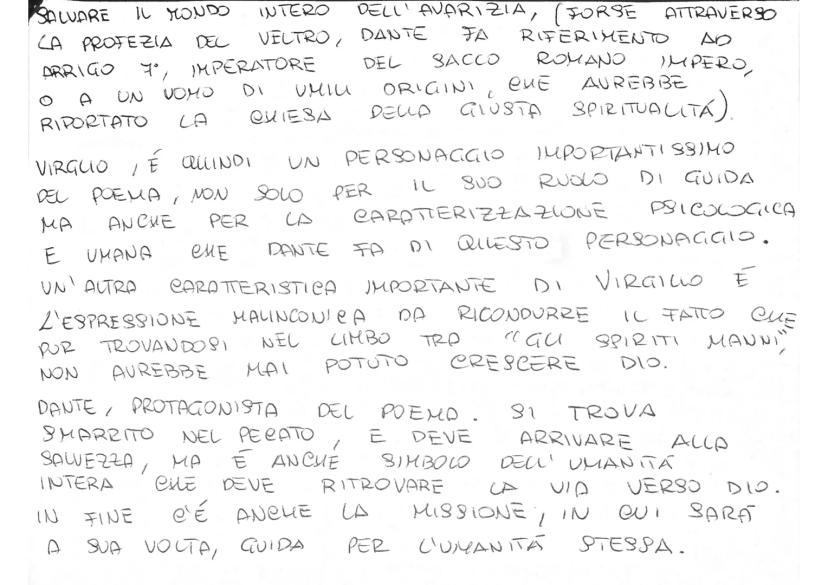 SALVARE IL MONDO INTERO DELL'AVARIZIA, (FORSE ATTRAVERSO
LA PROFEZIA DEL VELTRO, DANTE FA RIFERIMENTO AD
ARRIGO 7°, IMPERATORE DEL SACCO ROMANO IMPERO,
O A UN UOMO DI UMILI ORIGINI, CHE AVREBBE
RIPORTATO LA CHIESA DELLA GIUSTA SPIRITUALITÁ)
VIRGLIO, É QUINDI UN PERSONAGGIO IMPORTANTISSIMO
DEL POEMA, NON SOLO PER IL SUO RUOLO DI GUIDA
MA ANCHE PER LA CARATTERIZZAZIONE PSICOLOGICA
E UMANA CHE DANTE FA DI QUESTO PERSONAGGIO.
UN'ALTRA CARATTERISTICA IMPORTANTE DI VIRGILIO É
L'ESPRESSIONE MALINCONICA DA RICONDURRE IL FATTO CHE
PUR TROVANDOSI NEL LIMBO TRA "GLI SPIRITI MANNI",
NON AVREBBE MAI POTUTO CRESCERE DIO.
DANTE, PROTAGONISTA DEL POEMA. SI TROVA
SMARRITO NEL PECATO, E DEVE ARRIVARE ALLA
SALVEZZA, MA É ANCHE SIMBOLO DELL'UMANITÁ
INTERA CHE DEVE RITROVARE LA VIA VERSO DIO.
IN FINE C'É ANCHE LA MISSIONE, IN CUI SARÁ
A SUA VOLTA, GUIDA PER L'UMANITÁ STESSA.